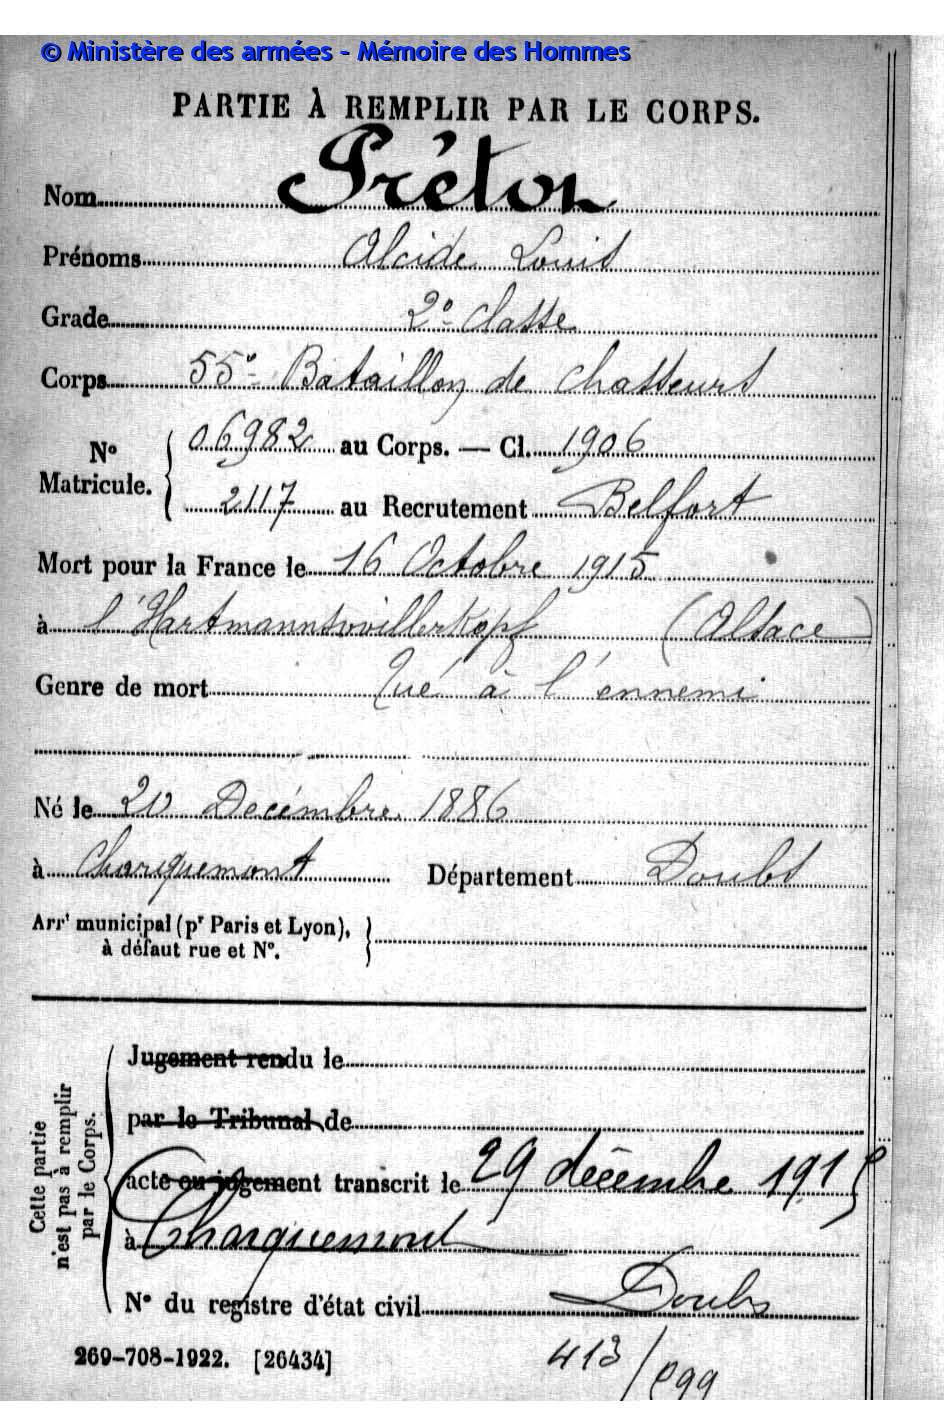 © Ministère des armées - Mémoire des Hommes
PARTIE À REMPLIR PAR LE CORPS.
Nom Prétot
Prénoms Alcide Louis
Grade 2e classe
Corps 55e Bataillon de chasseurs
No Matricule. { 06982 au Corps. — Cl. 1906
2117 au Recrutement Belfort
Mort pour la France le 16 Octobre 1915
à l'Hartmannsvillerkopf (Alsace)
Genre de mort Tué à l'ennemi
Né le 20 Decémbre 1886
à Charquemont Département Doubs
Arrt municipal (pr Paris et Lyon), }
à défaut rue et No.
Cette partie
n'est pas à remplir
par le Corps.
Jugement rendu le
par le Tribunal de
acte ou jugement transcrit le 29 décembre 1915
à Charquemont
Doubs
No du registre d'état civil
269-708-1922. [26434]
413/